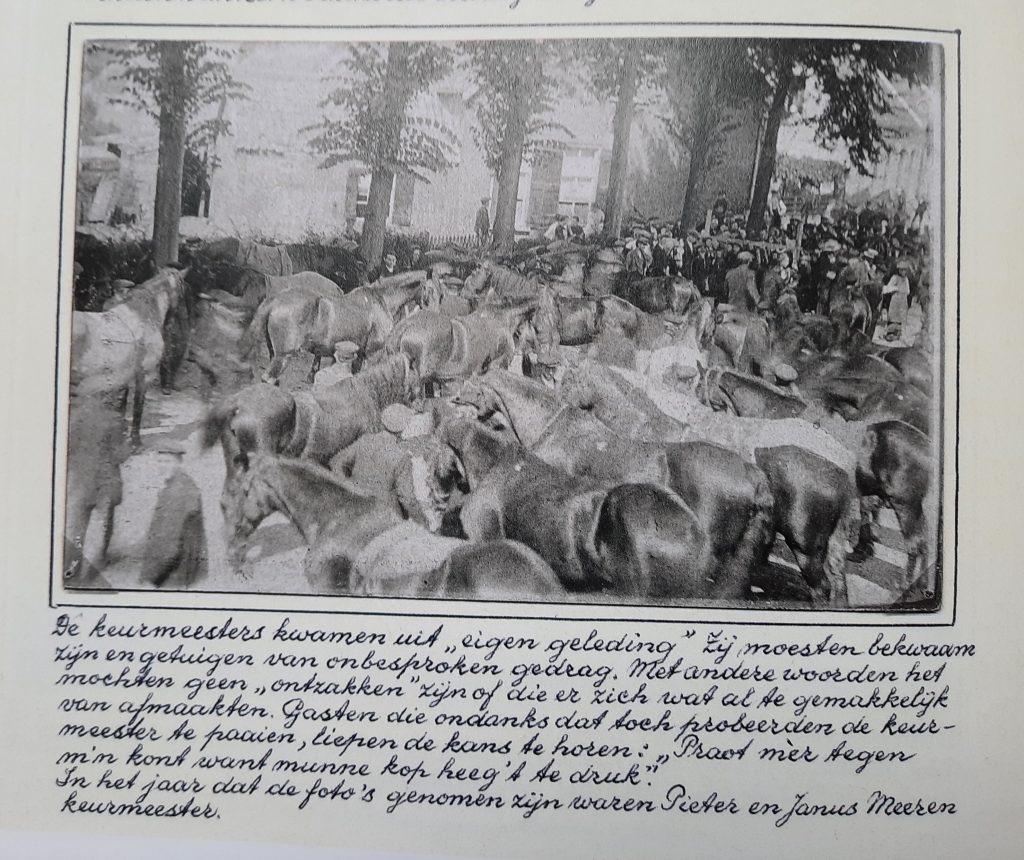 De keurmeesters kwamen uit „eigen geleding” Zij moesten bekwaam
zijn en getuigen van onbesproken gedrag. Met andere woorden het
mochten geen „ontzakken” zijn of die er zich wat al te gemakkelijk
van afmaakten. Gasten die ondanks dat toch probeerden de keur-
meester te paaien, liepen de kans te horen: „Praot mèr tegen
m'n kont want munne kop heeg't te druk”.
In het jaar dat de foto's genomen zijn waren Pieter en Janus Meeren
keurmeester.